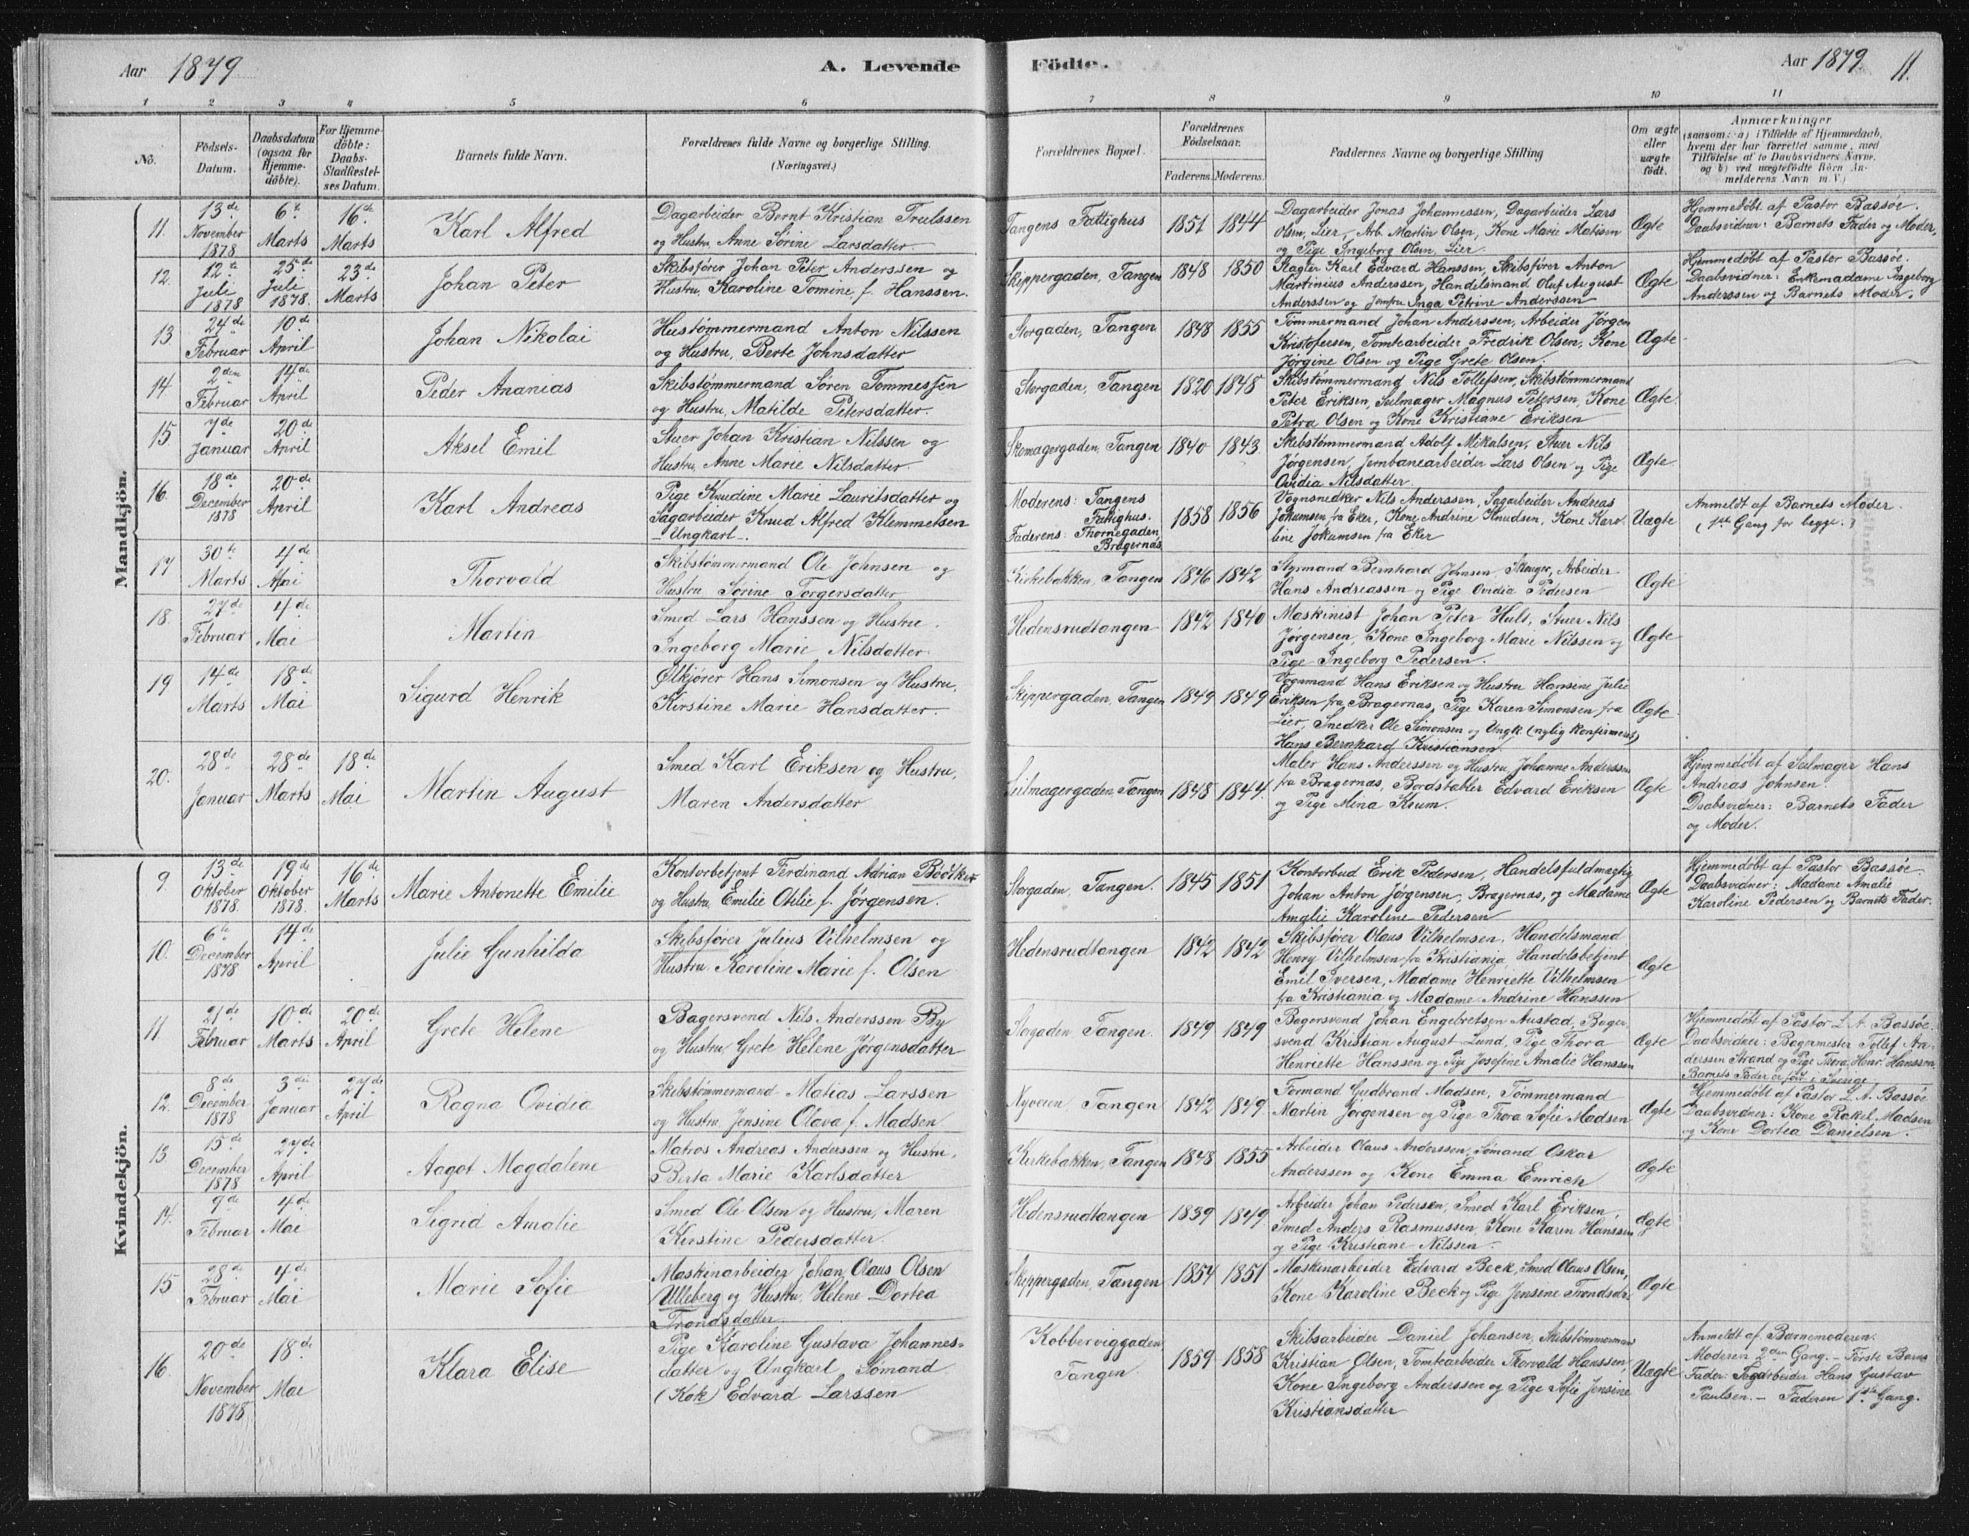 Aar 1879
A. Levende Födte.
Aar 1879. 11.
1 2 3 4 5 6 7 8 9 10 11
No.
Födsels-Datum.
Daabsdatum (ogsaa for Hjemme-döbte).
For Hjemme-döbte: Daabs-Stadfæstel-ses Datum.
Barnets fulde Navn.
Forældrenes fulde Navne og borgerlige Stilling. (Næringsvei.)
Forældrenes Bopæl.
Forældrenes Födselsaar.
Faderens. Moderens.
Faddernes Navne og borgerlige Stilling
Om ægte eller uægte födt.
Anmærkninger
(saasom: a) i Tilfælde af Hjemmedaab,
hvem der har forrettet samme, med
Tilföielse af to Daabsvidners Navne,
og b) ved uægtefödte Börn An-
melderens Navn m. V.)
Mandkjön.
11. 13de November 1878 6te Marts 16de Marts
Karl Alfred
Dagarbeider Bernt Kristian Truilssen
og Hustru, Anne Sørine Larsdatter.
Tangens Fattighus 1851 1844
Dagarbeider Jonas Johannessen, Dagarbeider Lars
Olsen, Lier, Arb. Martin Olsen, Kone Marie Matisen
og Pige Ingeborg Olsen, Lier.
Ægte
Hjemmedøbt af Pastor Bassøe.
Daabsvidner: Barnets Fader og Moder.
12. 12te Juli 1878 25de Juli 1878. 23de Marts
Johan Peter
Skibsfører Johan Peter Anderssen og
Hustru, Karoline Tomine, f. Hanssen.
Skippergaden, Tangen 1848 1850
Slagter Karl Edvard Hanssen, Skibsfører Anton
Martinius Anderssen, Handelsmand Oluf August
Anderssen og Jomfru Inga Petrine Anderssen
Ægte
Hjemmedøbt af Pastor Bassøe.
Daabsvidner: Enkemadame Ingeborg
Anderssen og Barnets Moder.
13. 24de Februar 10de April
Johan Nikolai
Hustømmermand Anton Nilssen
og Hustru, Berte Johnsdatter
Storgaden, Tangen 1848 1855
Tømmermand Johan Anderssen, Arbeider Jørgen
Kristofersen, Tomtearbeider Fredrik Olsen, Kone
Jørgine Olsen og Pige Grete Olsen.
Ægte
14 2den Februar 14de April
Peder Ananias
Skibstømmermand Søren Tommessen
og Hustru, Matilde Petersdatter.
Storgaden, Tangen 1820 1848
Skibstømmermand Nils Tollefsen, Skibstømmermand
Peter Eriksen, Seilmager Magnus Petersen, Kone
Petra Olsen og Kone Kristiane Eriksen
Ægte.
15 7de Januar 20de April
Aksel Emil
Stuer Johan Kristian Nilssen og
Hustru, Anne Marie Nilsdatter.
Skomagergaden, Tangen 1840 1843
Skibstømmermand Adolf Mikalsen, Stuer Nils
Jørgensen, Jernbanearbeider Lars Olsen og Pige
Ovidia Nilsdatter.
Ægte
16. 18de December 1878 20de April
Karl Andreas
Pige Knudine Marie Lauritsdatter og
Sagarbeider Knud Alfred Klemmetsen
Ungkarl.
Moderens: Tangens Fattighus.
Faderens: Thornegaden, Bragernæs
1858 1856
Vognsnedker Nils Anderssen, Sagarbeider Andreas
Jokumsen fra Eker, Kone Andrine Knudsen, Kone Karo-
line Jokumsen fra Eker
Uægte
Anmeldt af Barnets Moder.
(1ste Gang for begge.)
17 30te Marts 4de Mai
Thorvald
Skibstømmermand Ole Johnsen og
Hustru Sørine Torgersdatter
Kirkebakken, Tangen 1846 1842
Styrmand Bernhard Johnsen, Skoger, Arbeider
Hans Andreassen og Pige Ovidia Pedersen
Ægte
18. 27de Februar 4de Mai
Martin
Smed Lars Hanssen og Hustru.
Ingeborg Marie Nilsdatter.
Hedensrudtangen 1842 1840
Maskinist Johan Peter Hult, Stuer Nils
Jørgensen, Kone Ingeborg Marie Nilssen og
Pige Ingeborg Pedersen.
Ægte
19 14de Marts 18de Mai
Sigurd Henrik
Ølkjører Hans Simonsen og Hustru,
Kirstine Marie Hansdatter.
Skippergaden, Tangen 1849 1849
Vognmand Hans Eriksen og Hustru Hansine Julie
Eriksen fra Bragernæs, Pige Karen Simonsen fra
Lier, Snedker Ole Simonsen og Ungk. (nylig konfirmeret)
Hans Bernhard Kristiansen.
Ægte
20. 28de Januar 28de Marts 18de Mai
Martin August
Smed Karl Eriksen og Hustru,
Maren Andersdatter
Seilmagergaden, Tangen 1848 1844.
Maler Hans Anderssen og Hustru, Johanne Anderssen
fra Bragernæs, Bordstabler Edvard Eriksen
og Pige Mina Krum.
Ægte
Hjemmedøbt af Seilmager Hans
Andreas Johnsen.
Daabsvidner: Barnets Fader
og Moder.
Kvindekjön.
9. 13de Oktober 1878 19de Oktober 1878. 16de Marts
Marie Antonette Emilie
Kontorbetjent Ferdinand Adrian Bödtker
og Hustru, Emilie Otilie f. Jörgensen.
Storgaden, Tangen. 1845 1851
Kontorbud Erik Pedersen, Handelsfuldmægtig
Johan Anton Jørgensen, Bragernæs, og Madame
Amalie Karoline Pedersen
Ægte
Hjemmedøbt af Pastor Bassøe.
Daabsvidner: Madame Amalie
Karoline Pedersen og Barnets Fader.
10. 6te December 1878 14de April
Julie Gunhilda
Skibsfører Julius Vilhelmsen og
Hustru Karoline Marie f. Olsen
Hedensrudtangen 1842 1842
Skibsfører Olaus Vilhelmsen, Handelsmand
Henry Vilhelmsen fra Kristiania, Handelsbetjent
Emil Iversen, Madame Henriette Vilhelmsen
fra Kristiania og Madame Andrine Hanssen
Ægte
11 21de Februar 10de Marts 20de April
Grete Helene
Bagersvend Nils Anderssen By
og Hustru, Grete Helene Jørgensdatter
Aagaden Tangen. 1849 1849
Bagersvend Johan Engebretsen Austad, Bager-
svend Kristian August Lund, Pige Thora
Henriette Hanssen og Pige Josefine Amalie Hanssen
Ægte
Hjemmedøbt af Pastor L. A. Bassøe.
Daabsvidner: Bagermester Tollef An-
derssen Strand og Pige Thora Henr. Hanssen.
Barnets Fader er født i Sverige.
12. 8de December 1878 3die Januar 27de April
Ragna Ovidia
Skibstømmermand Matias Larssen
og Hustru Jensine Olava f. Madsen
Nyveien Tangen 1842 1849
Formand Gudbrand Madsen, Tømmermand
Martin Jørgensen og Pige Thora Sofie Madsen
Ægte
Hjemmedøbt af Pastor L. A. Bassøe
Daabsvidner: Kone Rakel Madsen
og Kone Dortea Danielsen.
13. 15de December 1878 27de April
Aagot Magdalene
Matros Andreas Anderssen og Hustru,
Berta Marie Karlsdatter
Kirkebakken, Tangen 1848 1855
Arbeider Olaus Anderssen, Sømand Oskar
Anderssen og Kone Emma Emrich
Ægte
14. 9de Februar 4de Mai
Sigrid Amalie
Smed Ole Olsen og Hustru, Maren
Kirstine Pedersdatter.
Hedensrudtangen 1839 1849
Arbeider Johan Pedersen, Smed Karl Eriksen,
Smed Anders Rasmussen, Kone Karen Hanssen
og Pige Kristiane Nilssen.
Ægte
15 28de Februar 4de Mai
Marie Sofie
Maskinarbeider Johan Olaus Olsen
Ulleberg og Hustru, Helene Dortea
Trondsdatter.
Skippergaden, Tangen 1854 1851
Maskinarbeider Edvard Beck, Smed Olaus Olsen,
Kone Karoline Beck og Pige Jensine Trondsdr.
Ægte
16. 20de November 1878 18de Mai
Klara Elise
Pige Karoline Gustava Johannes-
datter og Ungkarl Sømand
(Kok) Edvard Larssen
Kobberviggaden
Tangen.
1859 1858
Skibsarbeider Daniel Johansen, Skibstømmermand
Kristian Olsen, Tomtearbeider Thorvald Hanssen,
Kone Ingeborg Anderssen og Pige Sofie Jensine
Kristiansdatter
Uægte
Anmeldt af Barnemoderen.
Moderen 2den Gang. – Første Barns
Fader: Sagarbeider Hans Gustav
Paulsen. – Faderen 1ste Gang.